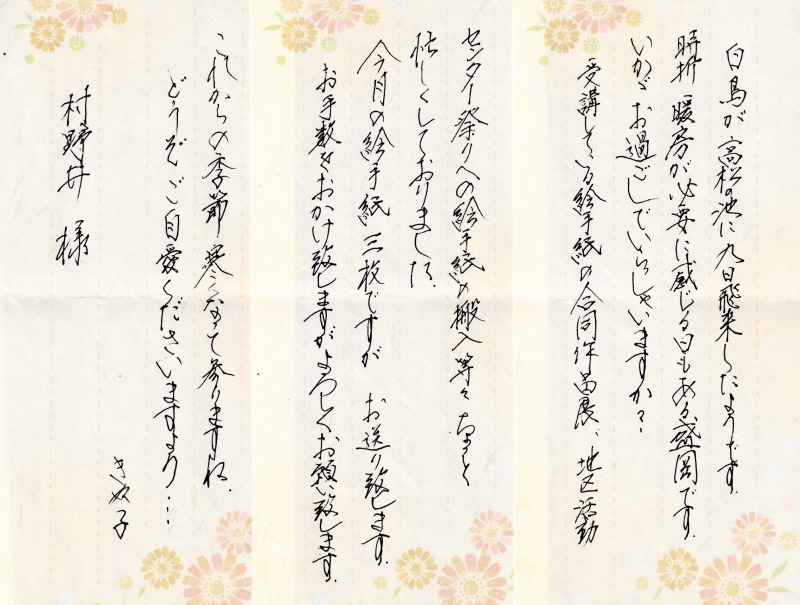 白鳥が高松の池に九日飛来したようです。
時折 暖房が必要に感じる日もある盛岡です。
いかゞお過ごしでいらっしゃいますか？
受講している絵手紙の合同作品展、地区活動
センター祭りへの絵手紙の搬入等々 ちょっと
忙しくしておりました。
今月の絵手紙 三枚ですが お送り致します。
お手数をおかけ致しますがよろしくお願い致します。
これからの季節 寒くなって参りますね。
どうぞご自愛くださいますよう…
きぬ子
村野井 様